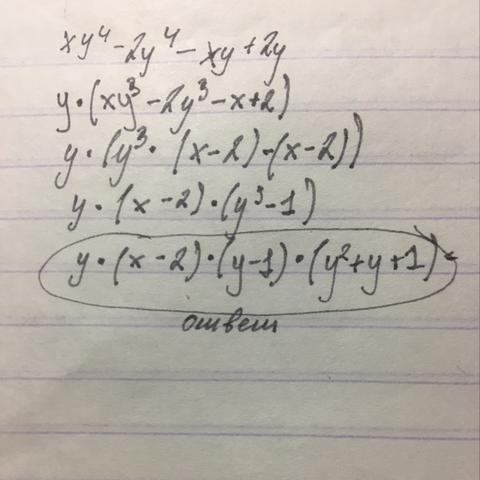 xy⁴-2y⁴-xy+2y
y·(xy³-2y³-x+2)
y·(y³·(x-2)-(x-2))
y·(x-2)·(y³-1)
y·(x-2)·(y-1)·(y²+y+1)
ответ